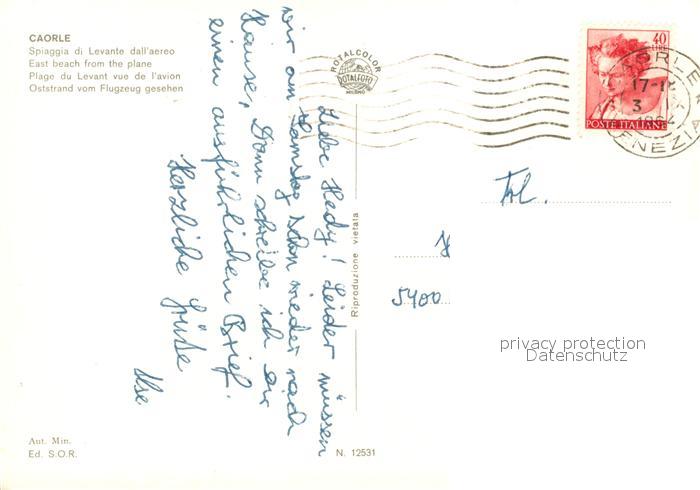 CAORLE
Spiaggia di Levante dall'aereo
East beach from the plane
Plage du Levant vue de l'avion
Oststrand vom Flugzeug gesehen
ROTALCOLOR
ROTALFOTO
MILANO
40
LIRE
POSTE ITALIANE
CAORLE
17-18
3
VENEZIA
Liebe Hedy! Leider müssen
wir am Samstag schon wieder nach
Hause, Dann schreibe ich dir
einen ausführlichen Brief.
Herzliche Grüße
Ilse
Riproduzione vietata
Frl.
5400
privacy protection
Datenschutz
Aut. Min.
Ed. S.O.R.
N. 12531